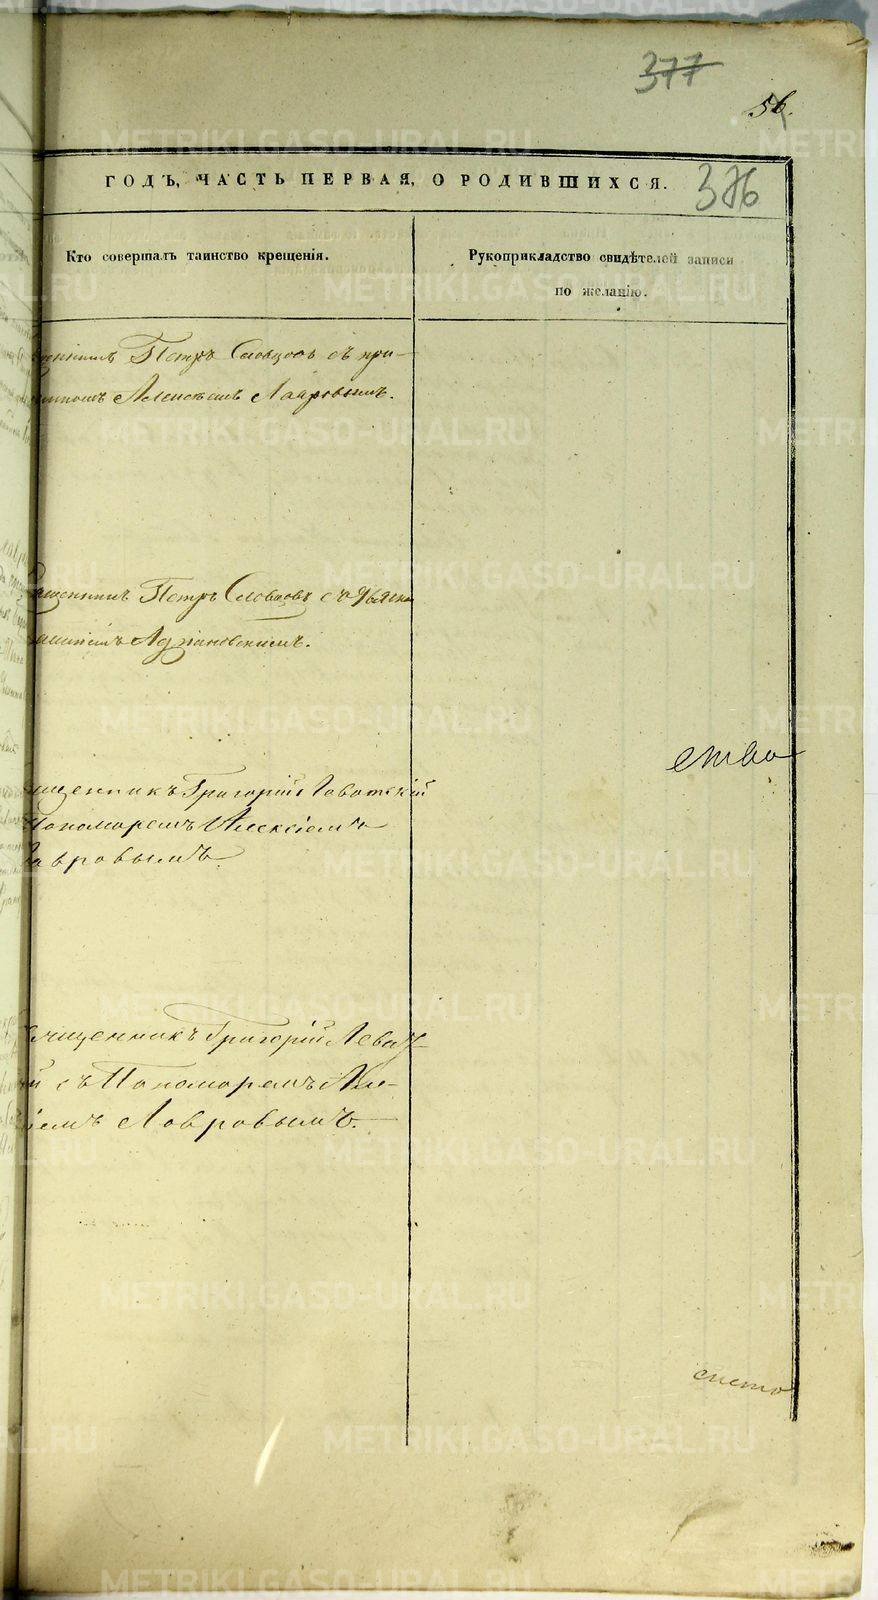 377
56.
ГОДЪ, ЧАСТЬ ПЕРВАЯ, О РОДИВШИХСЯ.
376
Кто совершалъ таинство крещенія.
Рукоприкладство свидѣтелей записи
по желанію.
щенникъ Петръ Словцовъ съ при-
Алексѣемъ Лавровымъ.
Священникъ Петръ Словцовъ съ дьячко
Адріановскимъ.
ство
ященникъ Григорій
Пономаремъ Алексіемъ
Лавровымъ
Священникъ Григорій Левит
ій съ Пономаремъ Але-
ѣемъ Лавровымъ.
METRIKI.GASO-URAL.RU